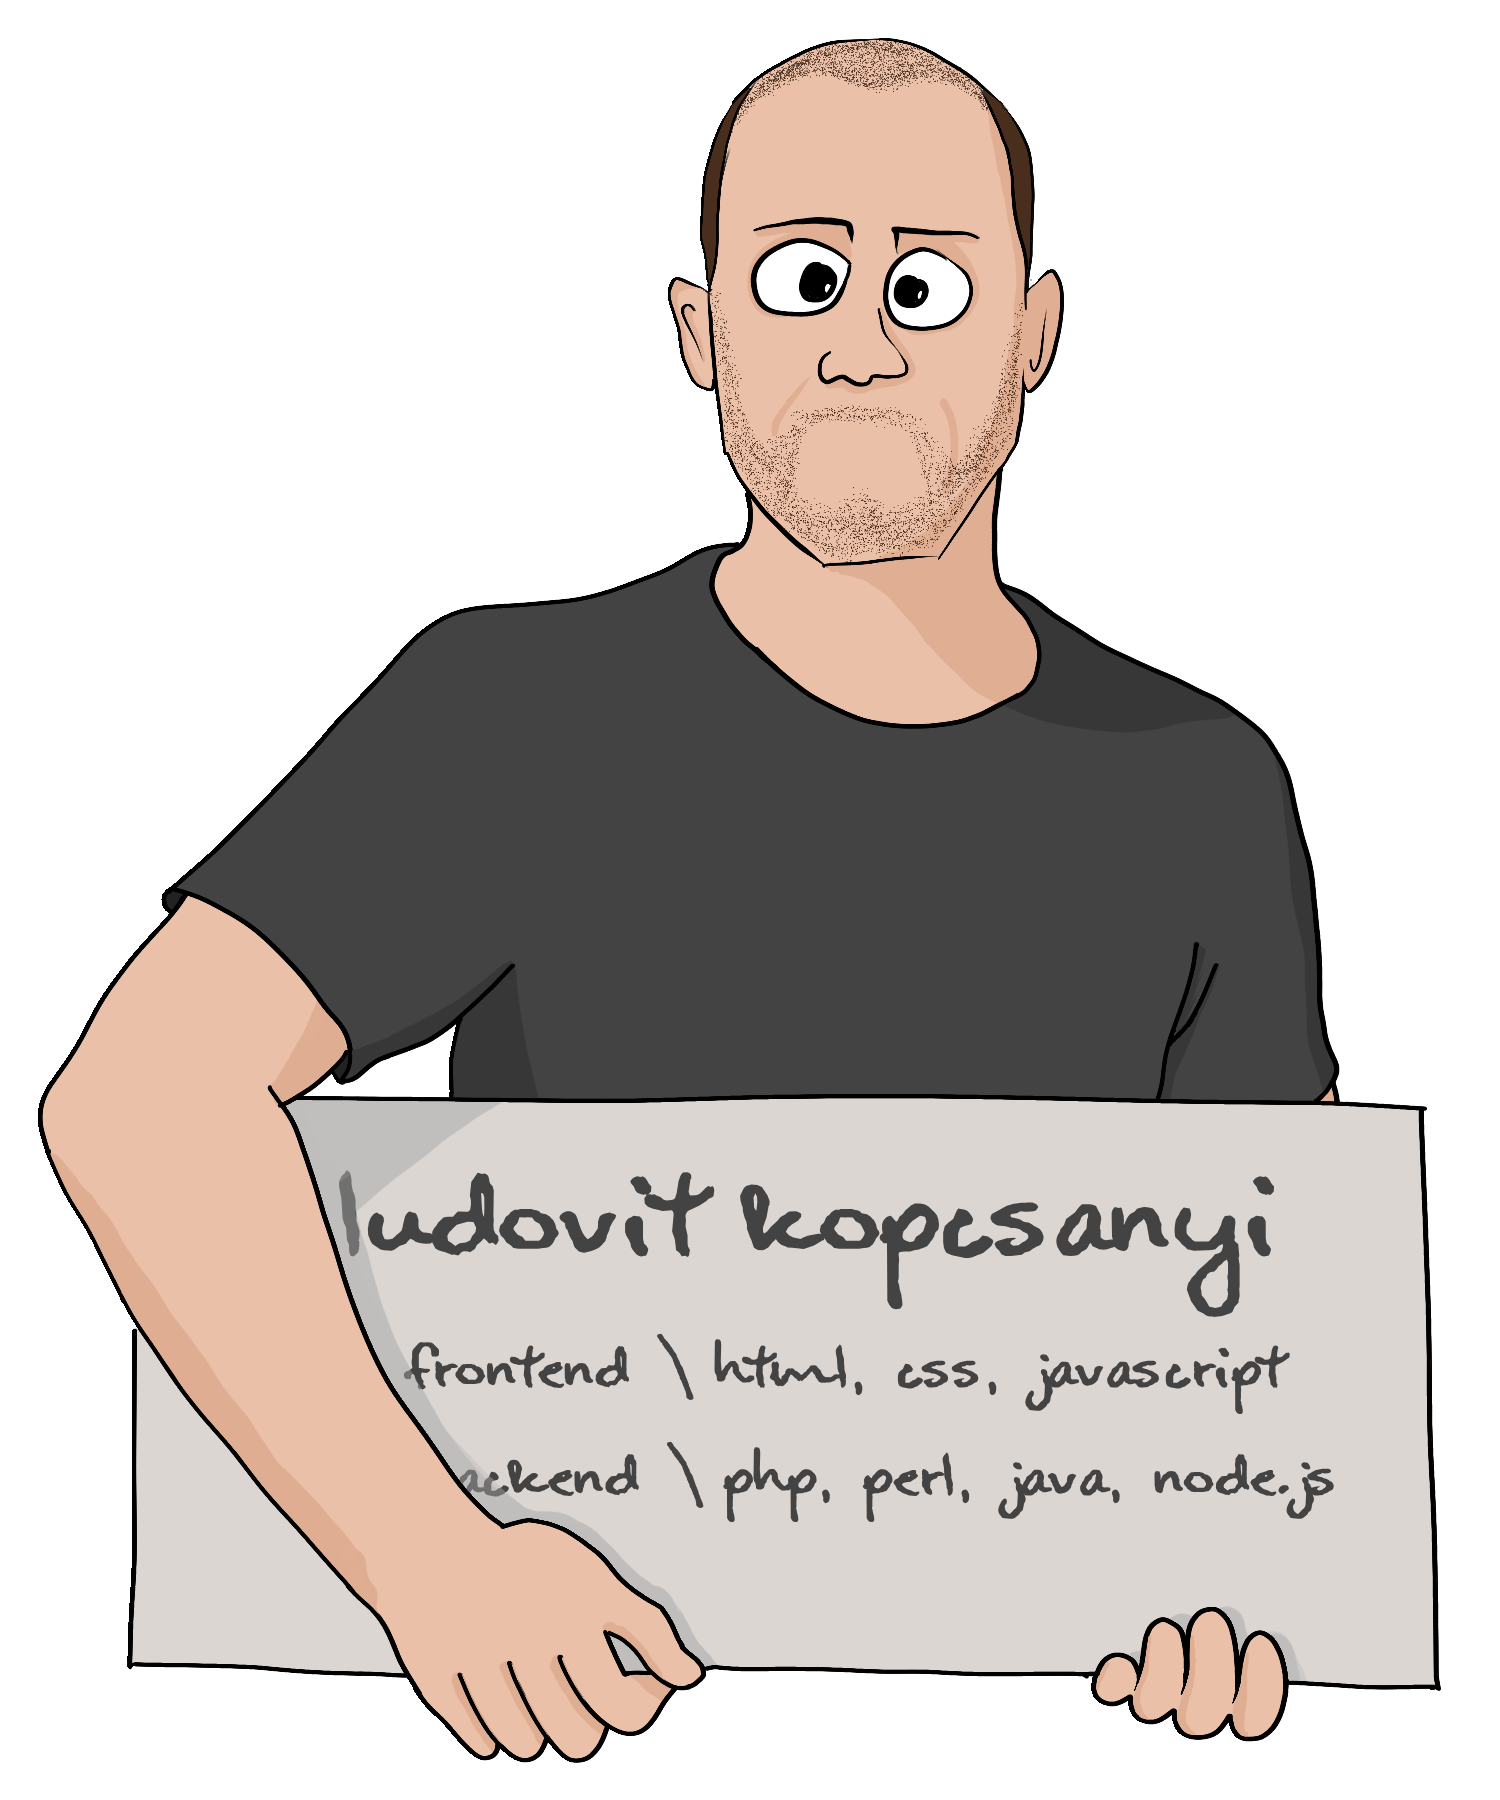 ludovit kopcsanyi
frontend \ html, css, javascript
ackend \ php, perl, java, node.js